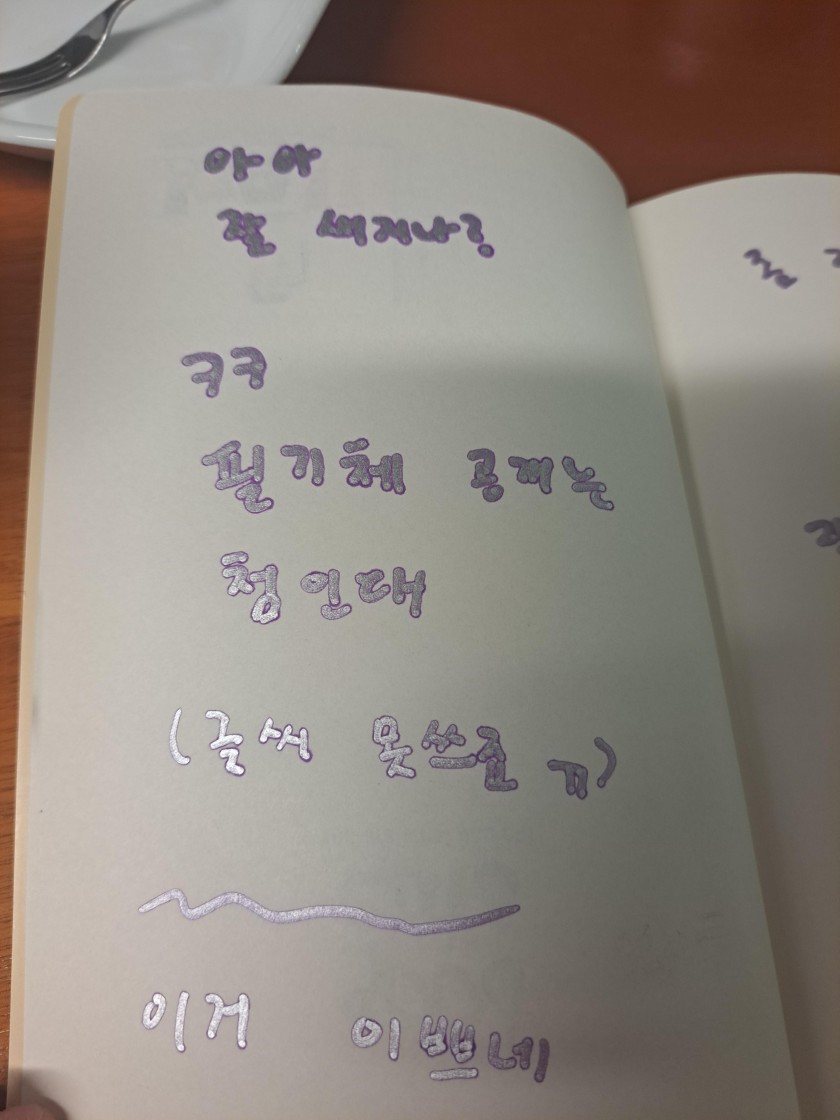 아아
잘 새겨지나?
ㅋㅋ
필기체 공개는
첨인대
(글씨 못쓰는 ㄲ)
이거 이쁘네